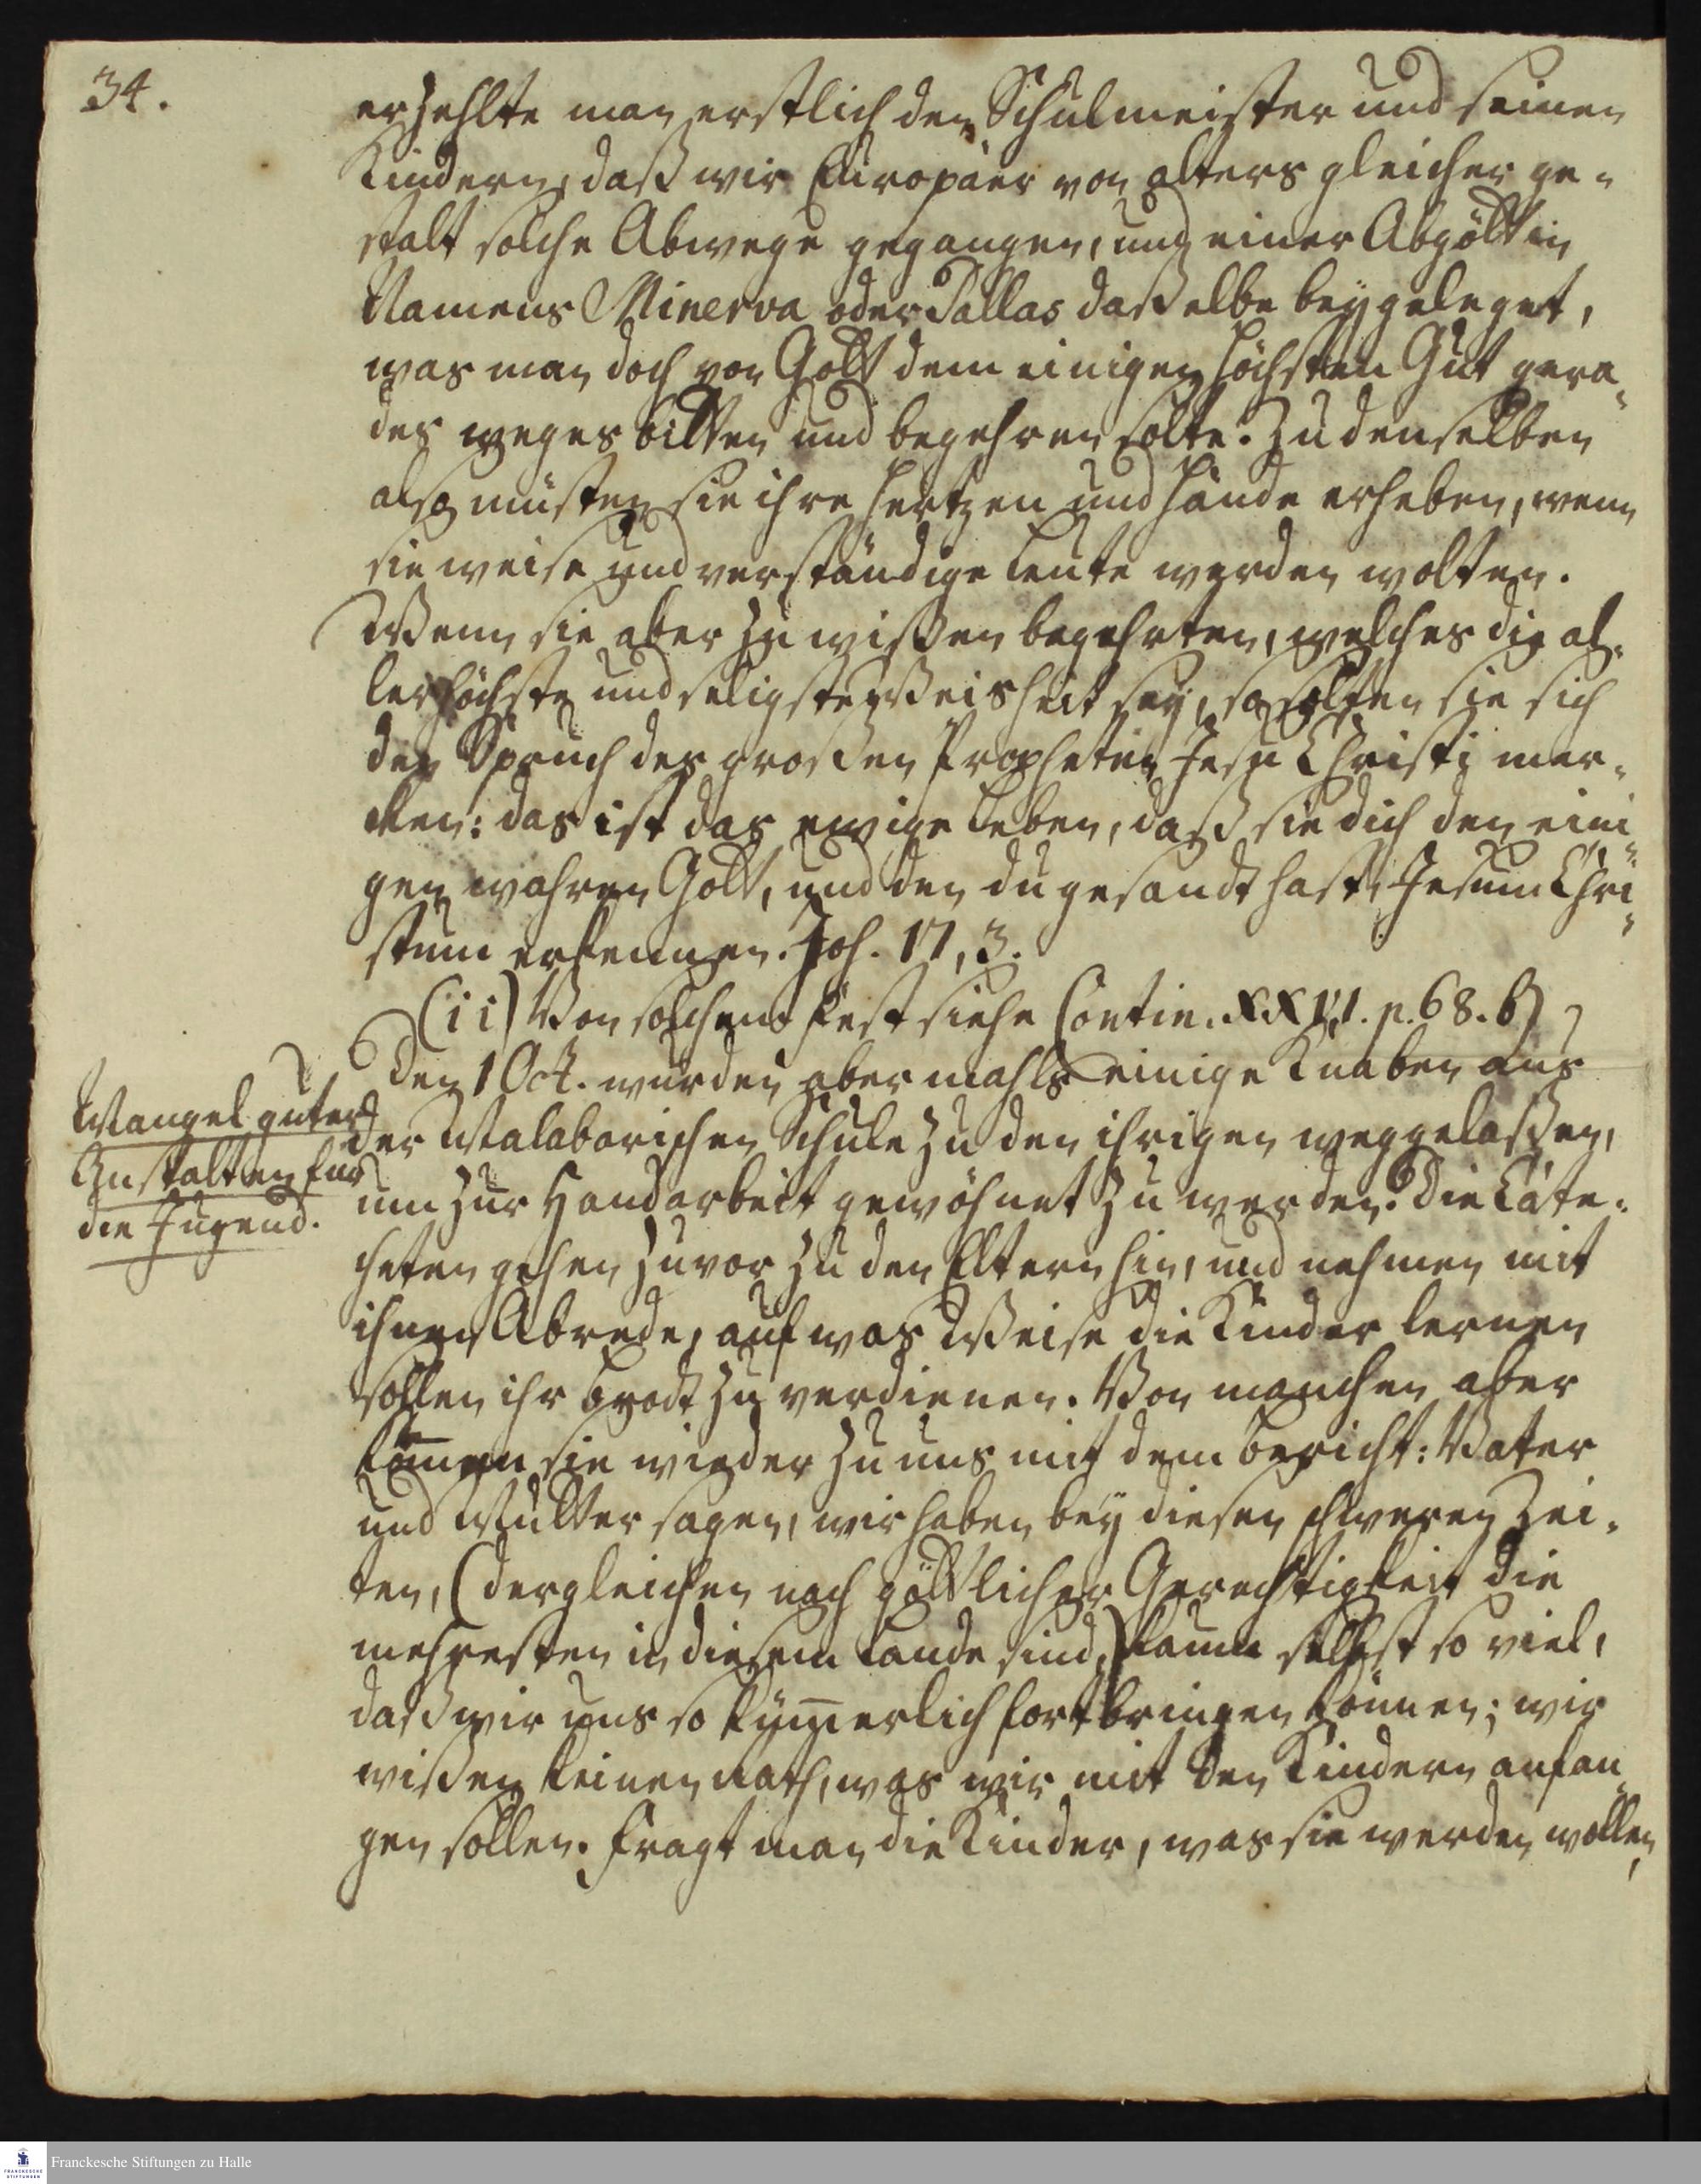 34.
erzehlte man erstlich den Schulmeister und seinen
Kindern, daß wir Europäer von alters gleicher ge-
stalt solche Abwege gegangen, und einer Abgöttin
Namens Minerva oder Pallas dasselbe beygeleget,
was man doch von Gott dem einigen höchsten Gut gera-
des weges bitten und begehren solte. Zu denselben
also müsten sie ihre Hertzen und Hände erheben, wenn
sie weise und verständige Leute werden wolten.
Wenn sie aber zu wissen begehrten, welches die al-
lerhöchste und seligste Weisheit sey, so solten sie sich
den Spruch des grossen Propheten Jesu Christi mer-
cken: das ist das ewige Leben, daß sie dich den eini-
gen wahren Gott, und den du gesandt hast, Jesum Chri-
stum erkennen. Joh. 17, 3.
(ii) Von solchem Fest siehe Contin. XXVI. p. 68. b)
Den 1 Oct. wurden abermahls einige Knaben aus
Mangel guter
Anstalten für
die Jugend.
der Malabarischen Schule zu den ihrigen weggelassen,
um zur Handarbeit gewöhnet zu werden. Die Cate-
cheten gehen zuvor zu den Eltern hin, und nehmen mit
ihnen Abrede, auf was Weise die Kinder lernen
sollen ihr Brodt zu verdienen. Von manchen aber
kom̅en sie wieder zu uns mit dem Bericht: Vater
und Mutter sagen, wir haben bey diesen schweren Zei-
ten, (dergleichen nach göttlicher Gerechtigkeit die
mehresten in diesem Lande sind,) kaum selbst so viel,
daß wir uns so küm̅erlich fortbringen können; wir
wissen keinen rath, was wir mit den Kindern anfan-
gen sollen. Fragt man die Kinder, was sie werden wollen,
Franckesche Stiftungen zu Halle